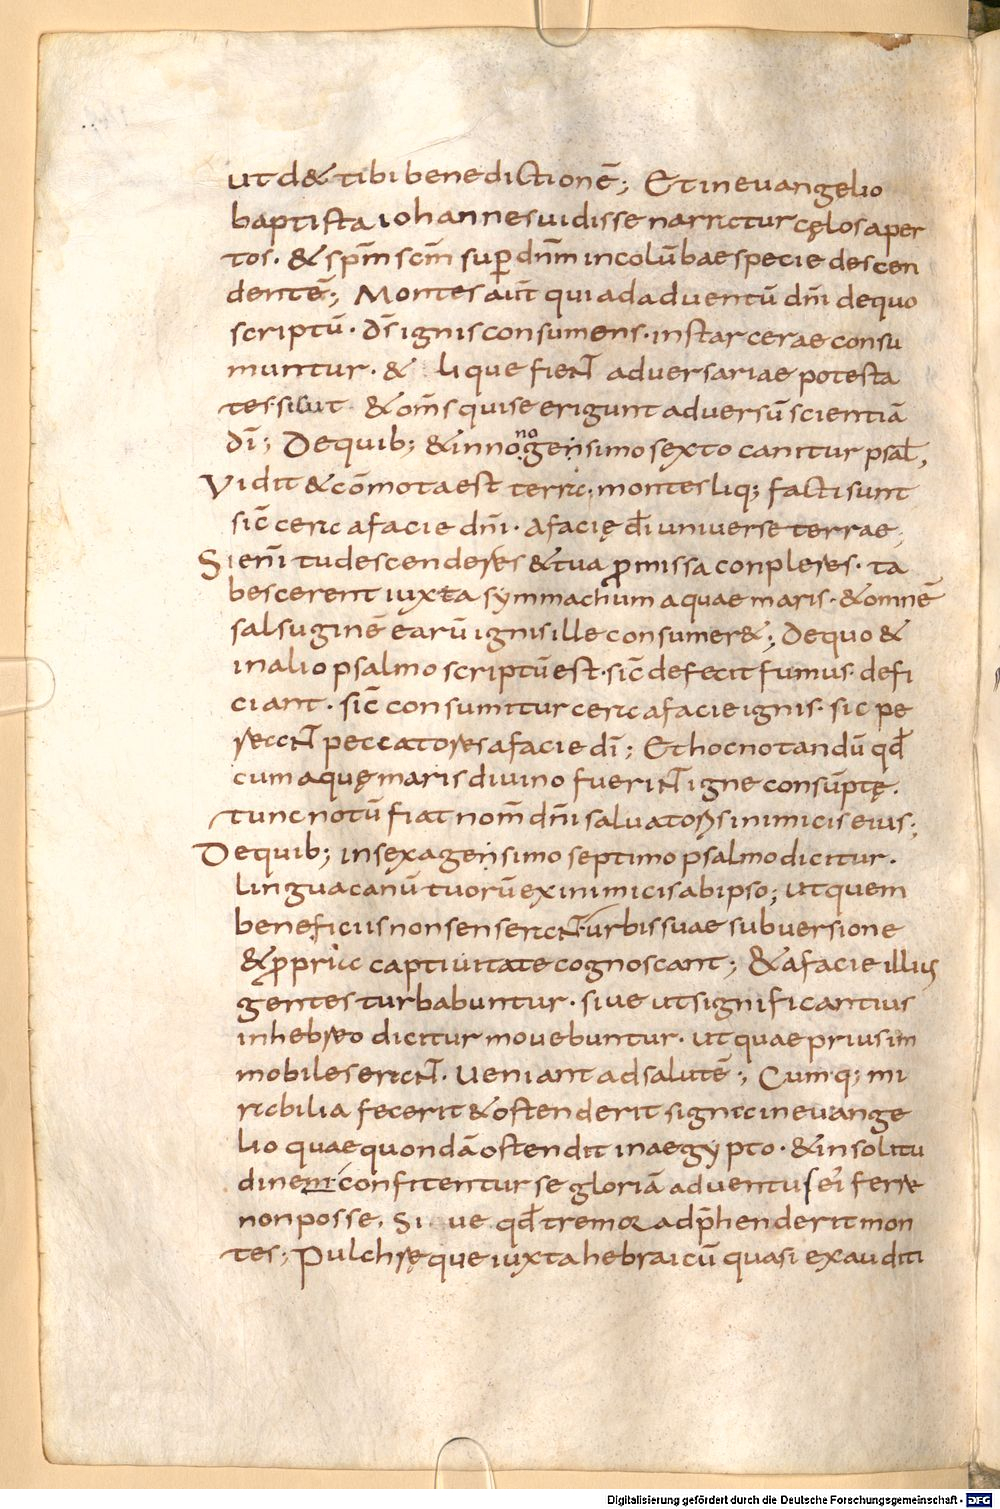 ut d& tibi benedictionē; Et in euangelio
baptista iohannes uidisse narratur cęlos aper
tos. & sp̄m sc̄m sup dn̄m in colūbae specie descen
dentē; Montes aūt qui ad aduentū dn̄i de quo
scriptū. ds̄ ignis consumens. instar cerae consu
muntur. & liquefient aduersariae potesta
tes. siuut & om̄s qui se erigunt aduersū scientiā
dī; De quib; & in nonogensimo sexto canitur psal̄,
Vidit & cōmota est terra. montes liq; facti sunt
sic̄ cera a facie dn̄i. a facię dn̄i uniuerse terrae;
Si enī tu descenderes & tua promissa conpleres. ta
bescerent iuxta symmachum aquae maris. & omnē
salsuginē earū ignis ille consumer&; De quo &
in alio psalmo scriptū est. sic̄ defecit fumus. defi
ciant. sic̄ consumitur cera a facie ignis. sic pe
reant peccatores a facie dī; Et hoc notandū qd̄
cum aquę maris diuino fuerint igne consūptę.
tunc notū fiat nom̄ dn̄i saluatoris inimicis eius;
De quib; in sexagensimo septimo psalmo dicitur.
lingua canū tuorū ex inimicis ab ipso; ut quem
beneficiis non senserant. urbis suae subuersione
& propria captiuitate cognoscant; & a facie illius
gentes turbabuntur. siue ut significantius
in hebreo dicitur mouebuntur. ut quae prius im
mobiles erant. ueniant ad salutē; Cumq; mi
rabilia fecerit & ostenderit signa in euange
lio quae quondā ostendit in aegypto. & in solitu
dinem. confitentur se gloriā aduentus ei' ferre
non posse. Siue qd̄ tremor adp̄henderit mon
tes; Pulchręque iuxta hebraicū quasi exauditi
Digitalisierung gefördert durch die Deutsche Forschungsgemeinschaft - DFG